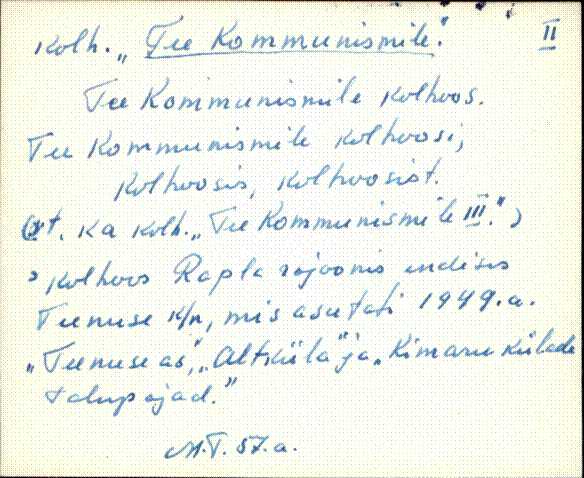 Kolh. „Tee Kommunismile". II
Tee Kommunismile kolhoos.
Tee Kommunismile kolhoosi,
kolhoosis, kolhoosist.
(vt. ka kolh. „Tee Kommunismile III.")
kolhoos Rapla rajoonis endises
Teenuse k/n, mis asutati 1949. a.
„Teenuse as", „Altküla" ja „Kimaru külade
talupojad."
M.T. 57. a.